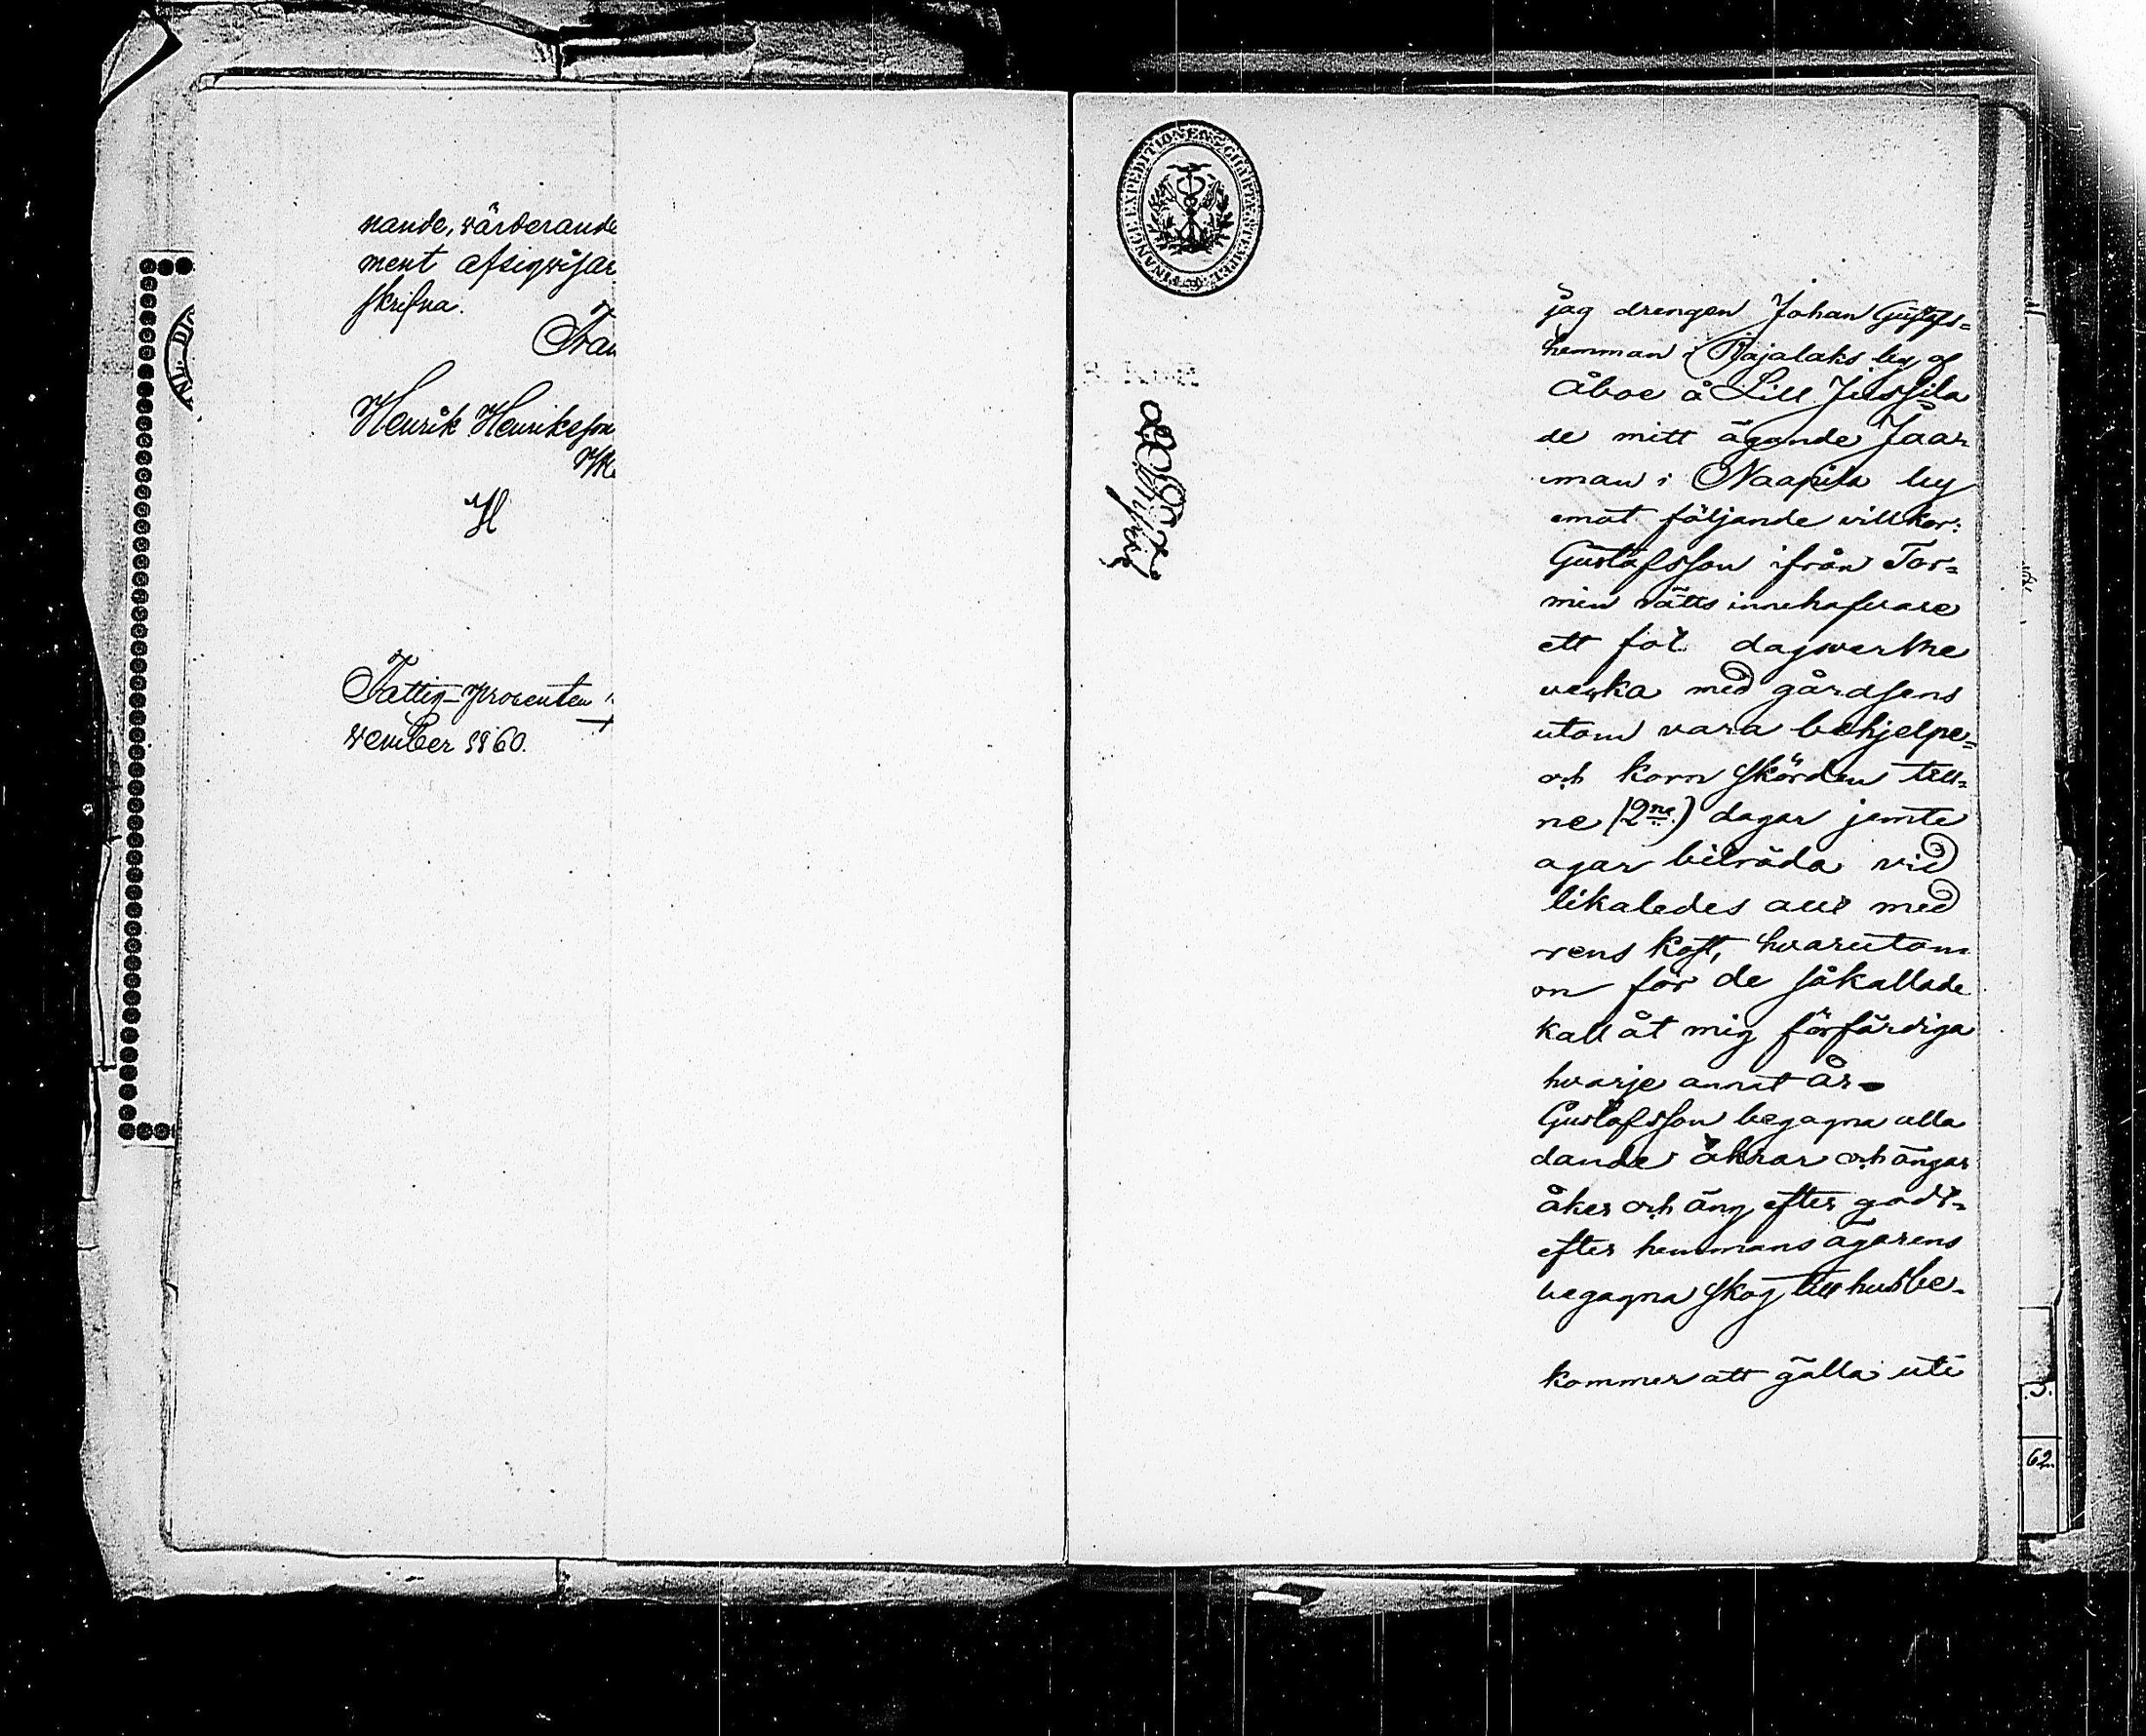 nande, värderande
ment afsigvisar
skrifna.
Fran
Henrik Henriksson
H
Fattig-Procenten
vember 1860.
FINANCE EXPEDITIONENS CHARTÆ STEMPEL
jag drengen Johan Gustafs=
hemman i Rajalaks by af
Åboe å Lill Jussila
de mitt ägande Jaar
man i Naapila by
emot följande villkor:
Gustafsson ifrån Tor=
min rätts innehafvare
ett föl dagsverke
verka med gårdsens
utom vara behjelpe=
och korn skörden till=
ne (2ne) dagar jemte
agar biträda vid
likaledes allt med
rens kost, hvarutom
on för de såkallade
kall åt mig förfärdiga
hvarje annat år
Gustafsson begagna alla
dande åkrar och ängar
åker och äng efter godt=
efter hemmans ägarens
begagna skog till husbe-
kommer att gälla uti
3.
62